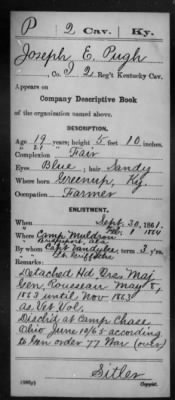 P 2 Cav. Ky.
Joseph E. Pugh
, Co. I, 2 Reg't Kentucky Cav.
Appears on
Company Descriptive Book
of the organization named above.
DESCRIPTION.
Age 19 years; height 5 feet 10 inches.
21
Complexion Fair
Eyes Blue; hair Sandy
Where born Greenup, Ky.
Occupation Farmer
ENLISTMENT.
When Sept. 30, 1861.
8 1864
Where Camp Muldrow
Bridgeport, Ala
By whom Capt Vandyke; term 3 y'rs.
Lt. Griffeths
Remarks:
Detached Hd Qrs. Maj
Gen. Rousseau May 5,
1863 until Nov 1863
as Vet Vol.
Disch'd at Camp Chase
Ohio June 10/65 according
to Gen order 77 War (over)
Sitler
Copyist.